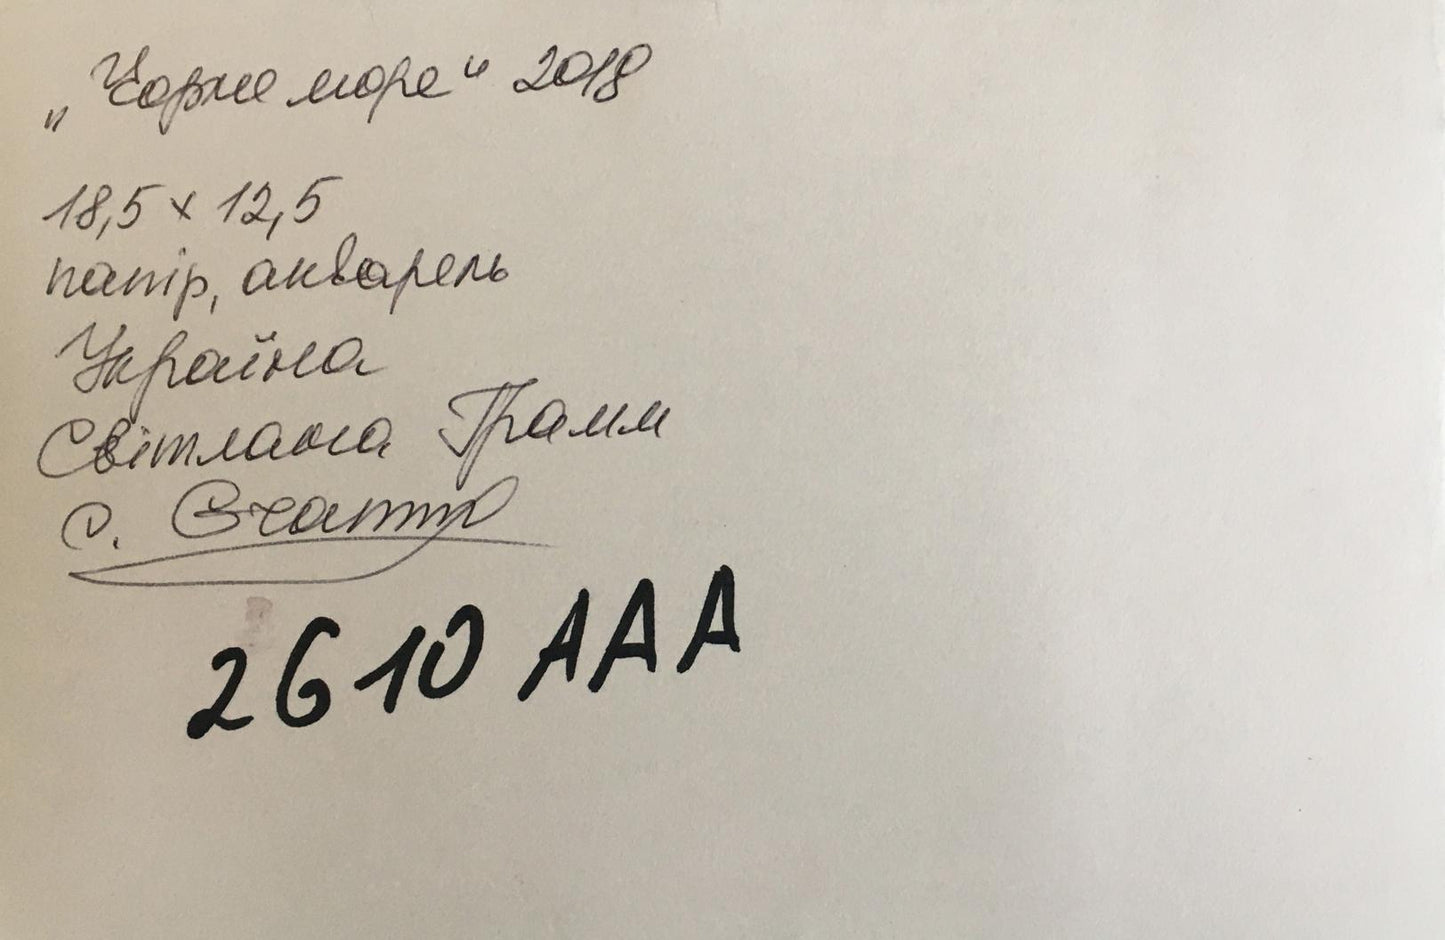 „Чорне море“ 2018
18,5 х 12,5
папір, акварель
Україна
Світлана Грамм
С.
2610 AAA